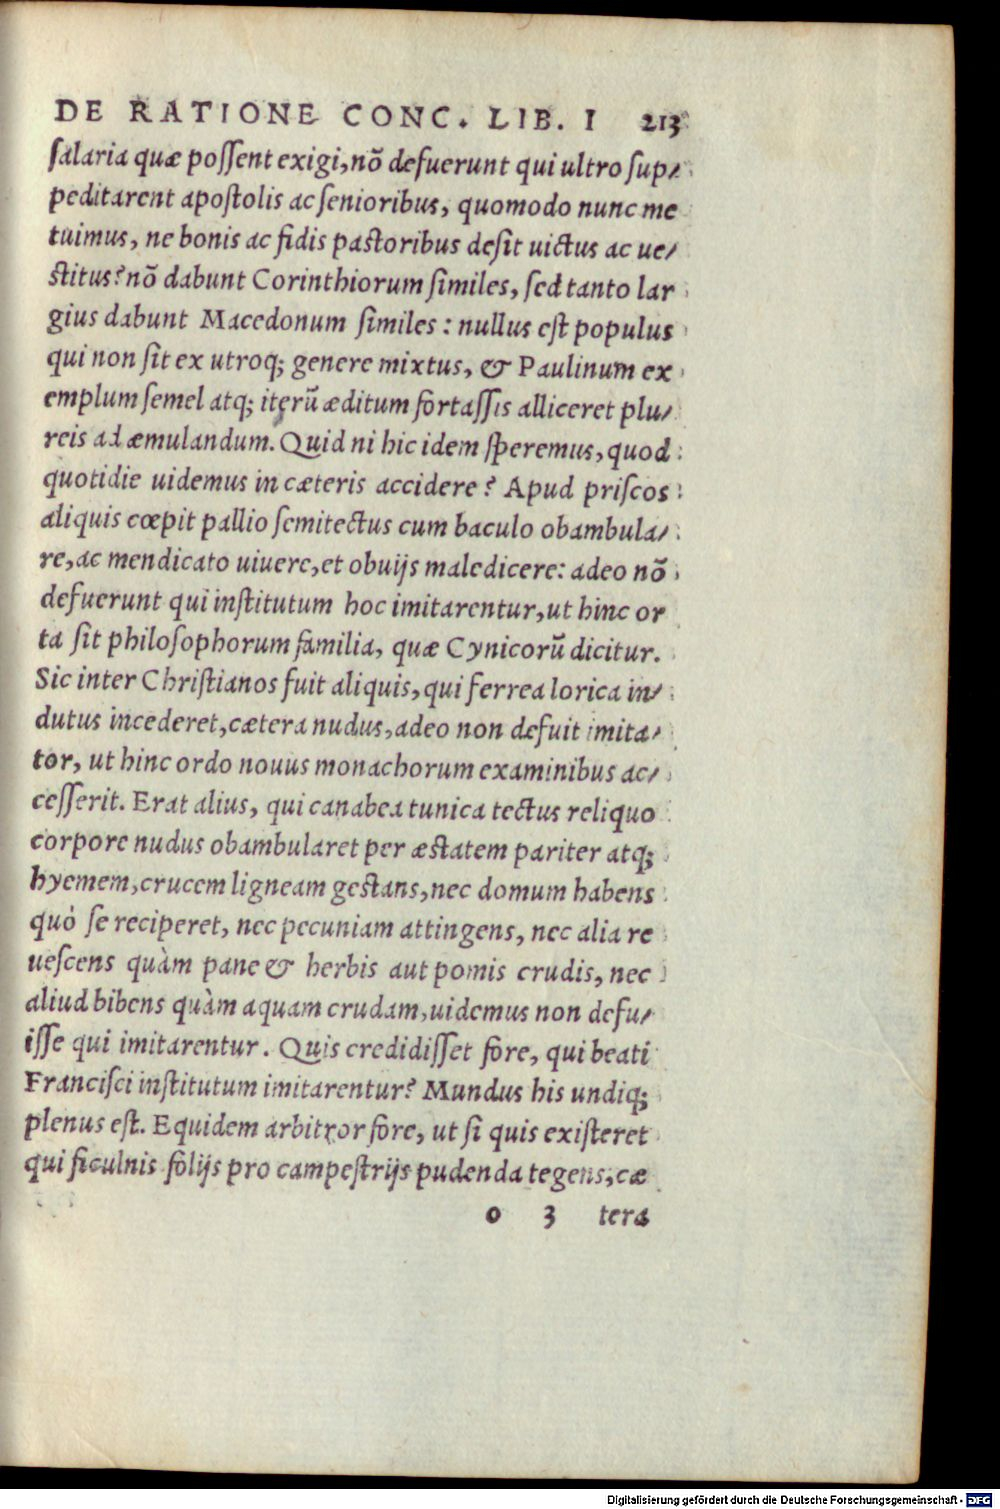 DE RATIONE CONC. LIB. I 213
salaria quæ possent exigi, nō defuerunt qui ultro sup-
peditarent apostolis ac senioribus, quomodo nunc me
tuimus, ne bonis ac fidis pastoribus desit uictus ac ue-
stitus? nō dabunt Corinthiorum similes, sed tanto lar
gius dabunt Macedonum similes: nullus est populus
qui non sit ex utroq; genere mixtus, & Paulinum ex
emplum semel atq; iterū æditum fortassis alliceret plu-
reis ad æmulandum. Quid ni hic idem speremus, quod
quotidie uidemus in cæteris accidere? Apud priscos
aliquis cœpit pallio semitectus cum baculo obambula-
re, ac mendicato uiuere, et obuijs maledicere: adeo nō
defuerunt qui institutum hoc imitarentur, ut hinc or
ta sit philosophorum familia, quæ Cynicorū dicitur.
Sic inter Christianos fuit aliquis, qui ferrea lorica in-
dutus incederet, cætera nudus, adeo non defuit imita-
tor, ut hinc ordo nouus monachorum examinibus ac-
cesserit. Erat alius, qui canabea tunica tectus reliquo
corpore nudus obambularet per æstatem pariter atq;
hyemem, crucem ligneam gestans, nec domum habens
quò se reciperet, nec pecuniam attingens, nec alia re
uescens quàm pane & herbis aut pomis crudis, nec
aliud bibens quàm aquam crudam, uidemus non defu-
isse qui imitarentur. Quis credidisset fore, qui beati
Francisci institutum imitarentur? Mundus his undiq;
plenus est. Equidem arbitror fore, ut si quis existeret
qui ficulnis folijs pro campestrijs pudenda tegens, cæ
o 3 tera
Digitalisierung gefördert durch die Deutsche Forschungsgemeinschaft - DFG